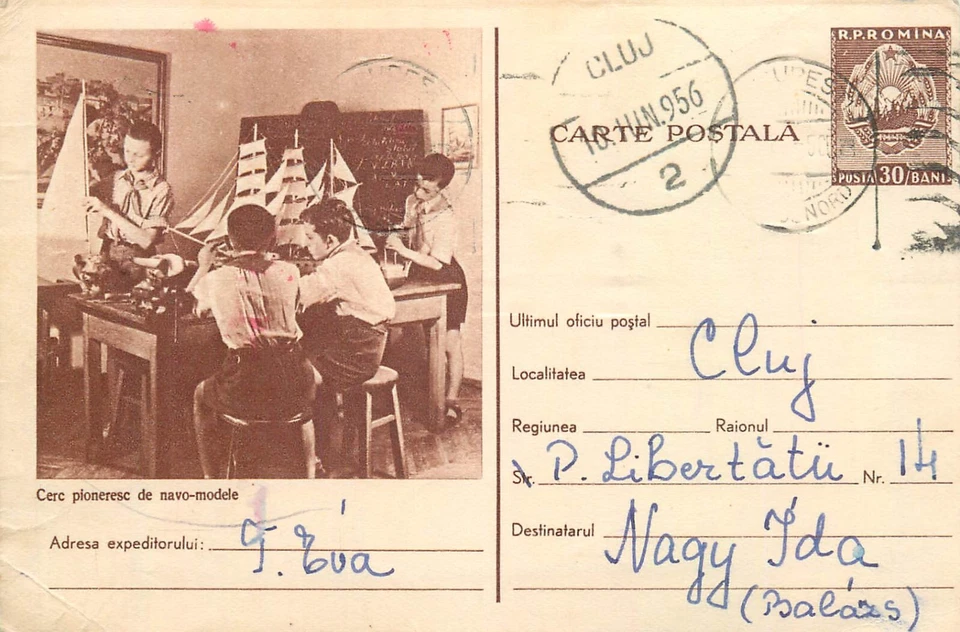 R.P.ROMINA
POSTA 30 BANI
CLUJ
CARTE POSTALĂ
2
NORD
Ultimul oficiu poştal
Cluj
Localitatea
Regiunea Raionul
Str. P. Libertătii Nr. 14
Destinatarul
Nagy Ida
(Balázs)
Cerc pioneresc de navo-modele
Adresa expeditorului: T. Éva